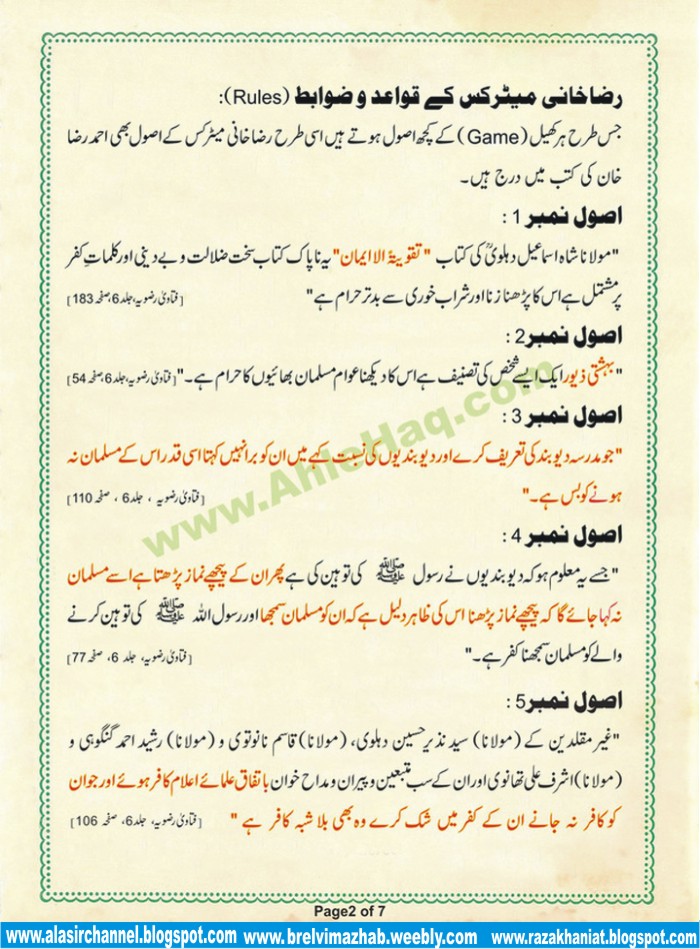 رضاخانی میٹرکس کے قواعد و ضوابط (Rules):
جس طرح ہر کھیل (Game) کے کچھ اصول ہوتے ہیں اسی طرح رضا خانی میٹرکس کے اصول بھی احمد رضا
خان کی کتب میں درج ہیں۔
اصول نمبر 1 :
"مولانا شاہ اسماعیل دہلویؒ کی کتاب "تقویۃ الا ایمان" یہ ناپاک کتاب سخت ضلالت و بے دینی اور کلماتِ کفر
پر مشتمل ہے اس کا پڑھنا زنا اور شراب خوری سے بدتر حرام ہے" [فتاویٰ رضویہ، جلد 6، صفحہ 183]
اصول نمبر 2:
"بہشتی زیور ایک ایسے شخص کی تصنیف ہے اس کا دیکھنا عوام مسلمان بھائیوں کا حرام ہے۔" [فتاویٰ رضویہ، جلد 6، صفحہ 54]
اصول نمبر 3 :
"جو مدرسہ دیوبند کی تعریف کرے اور دیوبندیوں کی نسبت کہے میں ان کو برا نہیں کہتا اسی قدر اس کے مسلمان نہ
ہونے کو بس ہے۔" [فتاویٰ رضویہ ، جلد 6 ، صفحہ 110]
اصول نمبر 4 :
"جسے یہ معلوم ہو کہ دیوبندیوں نے رسول ﷺ کی توہین کی ہے پھر ان کے پیچھے نماز پڑھتا ہے اسے مسلمان
نہ کہا جائے گا کہ پیچھے نماز پڑھنا اس کی ظاہر دلیل ہے کہ ان کو مسلمان سمجھا اور رسول اللہ ﷺ کی توہین کرنے
والے کو مسلمان سمجھنا کفر ہے۔" [فتاویٰ رضویہ، جلد 6، صفحہ 77]
اصول نمبر 5:
"غیر مقلدین کے (مولانا) سید نذیر حسین دہلوی، (مولانا) قاسم نانوتوی و (مولانا) رشید احمد گنگوہی و
(مولانا) اشرف علی تھانوی اور ان کے سب متبعین و پیران و مداح خوان باتفاق علمائے اعلام کافر ہوئے اور جو ان
کو کافر نہ جانے ان کے کفر میں شک کرے وہ بھی بلا شبہ کافر ہے " [فتاویٰ رضویہ، جلد 6، صفحہ 106]
www.AhleHaq.com
Page2 of 7
www.alasirchannel.blogspot.com www.brelvimazhab.weebly.com www.razakhaniat.blogspot.com